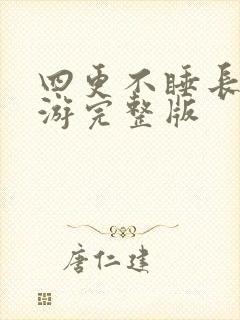 四更不睡長
游完整版
唐仁建